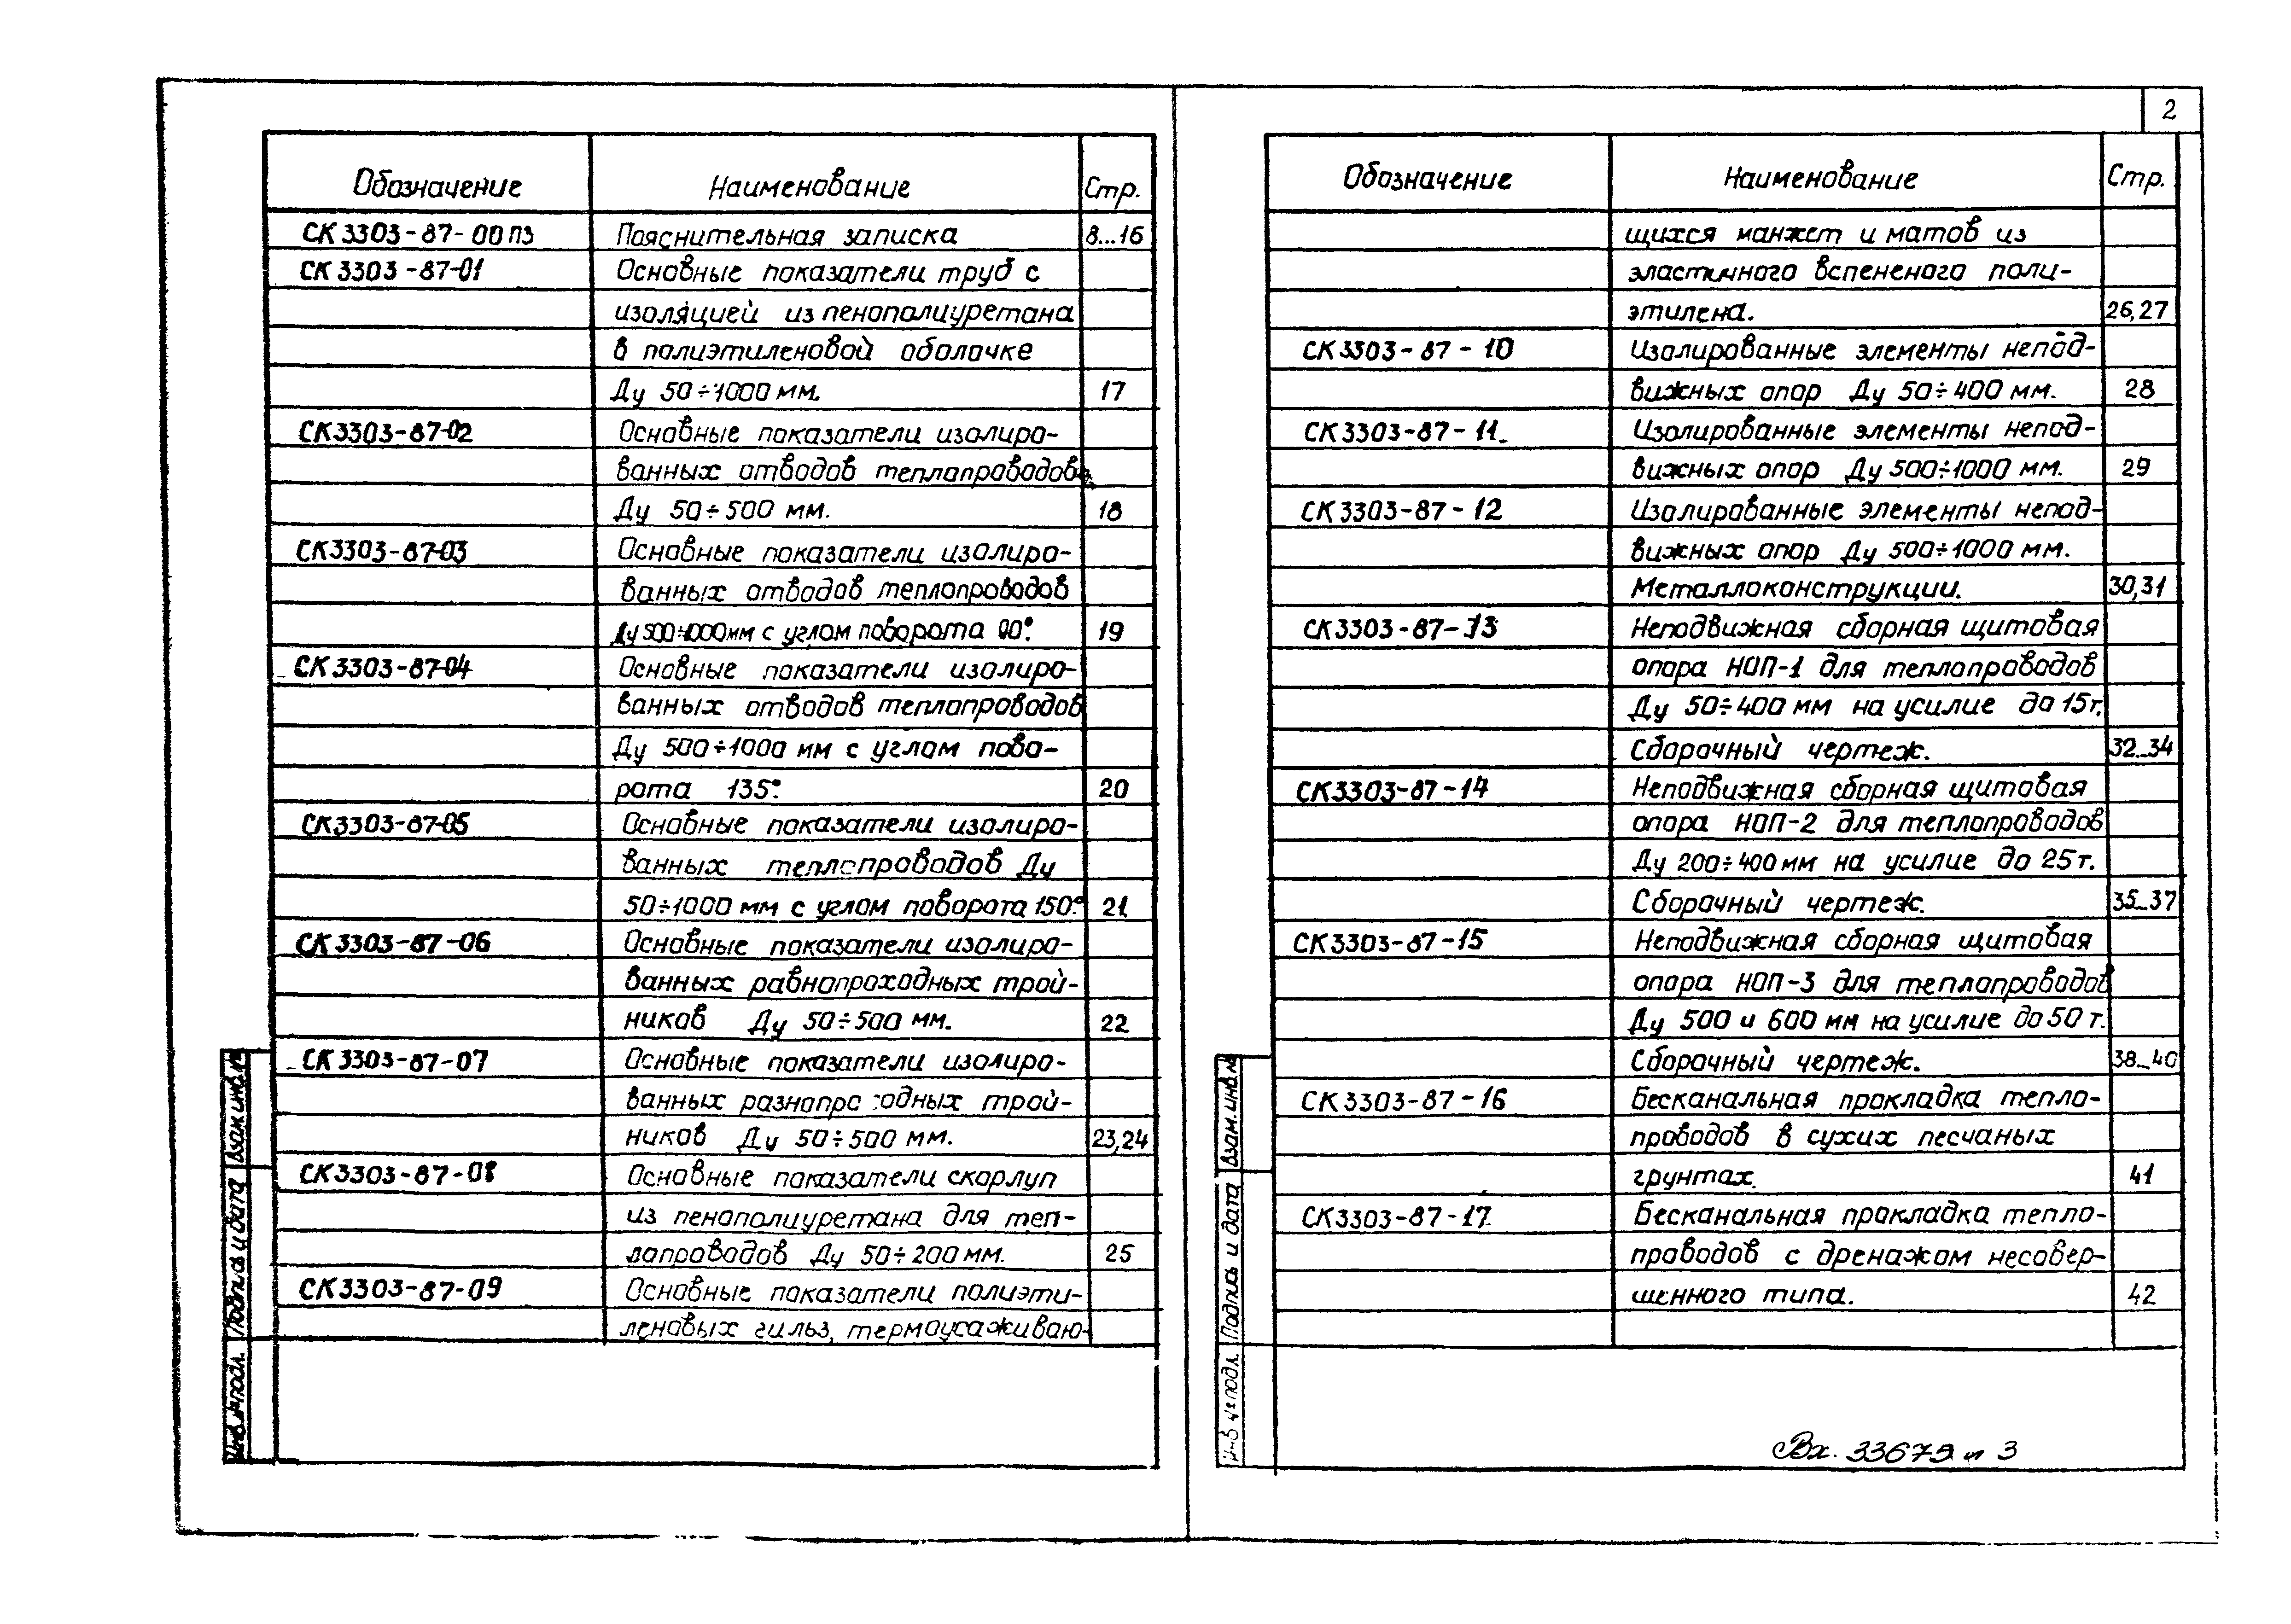 2
Обозначение Наименование Стр.
СК 3303-87-00 ПЗ Пояснительная записка 8...16
СК 3303-87-01 Основные показатели труб с
изоляцией из пенополиуретана
в полиэтиленовой оболочке
Ду 50÷1000 мм. 17
СК3303-87-02 Основные показатели изолиро-
ванных отводов теплопроводов
Ду 50÷500 мм. 18
СК3303-87-03 Основные показатели изолиро-
ванных отводов теплопроводов
Ду 500÷1000 мм с углом поворота 90°. 19
СК 3303-87-04 Основные показатели изолиро-
ванных отводов теплопроводов
Ду 500÷1000 мм с углом пово-
рота 135°. 20
СК3303-87-05 Основные показатели изолиро-
ванных теплопроводов Ду
50÷1000 мм с углом поворота 150°. 21
СК 3303-87-06 Основные показатели изолиро-
ванных равнопроходных трой-
ников Ду 50÷500 мм. 22
СК 3303-87-07 Основные показатели изолиро-
ванных разнопроходных трой-
ников Ду 50÷500 мм. 23,24
СК3303-87-08 Основные показатели скорлуп
из пенополиуретана для теп-
лопроводов Ду 50÷200 мм. 25
СК3303-87-09 Основные показатели полиэти-
леновых гильз, термоусаживаю-
Инв.№подл. Подпись и дата Взам.инв.№
Обозначение Наименование Стр.
щихся манжет и матов из
эластичного вспененого поли-
этилена. 26,27
СК3303-87-10 Изолированные элементы непод-
вижных опор Ду 50÷400 мм. 28
СК3303-87-11. Изолированные элементы непод-
вижных опор Ду 500÷1000 мм. 29
СК3303-87-12 Изолированные элементы непод-
вижных опор Ду 500÷1000 мм.
Металлоконструкции. 30,31
СК3303-87-13 Неподвижная сборная щитовая
опора НОП-1 для теплопроводов
Ду 50÷400 мм на усилие до 15т.
Сборочный чертеж. 32...34
СК3303-87-14 Неподвижная сборная щитовая
опора НОП-2 для теплопроводов
Ду 200÷400 мм на усилие до 25 т.
Сборочный чертеж. 35...37
СК3303-87-15 Неподвижная сборная щитовая
опора НОП-3 для теплопроводов
Ду 500 и 600 мм на усилие до 50 т.
Сборочный чертеж. 38...40
СК3303-87-16 Бесканальная прокладка тепло-
проводов в сухих песчаных
грунтах. 41
СК3303-87-17 Бесканальная прокладка тепло-
проводов с дренажом несовер-
шенного типа. 42
Инв.№подл. Подпись и дата Взам.инв.№
Вх. 33679 л 3